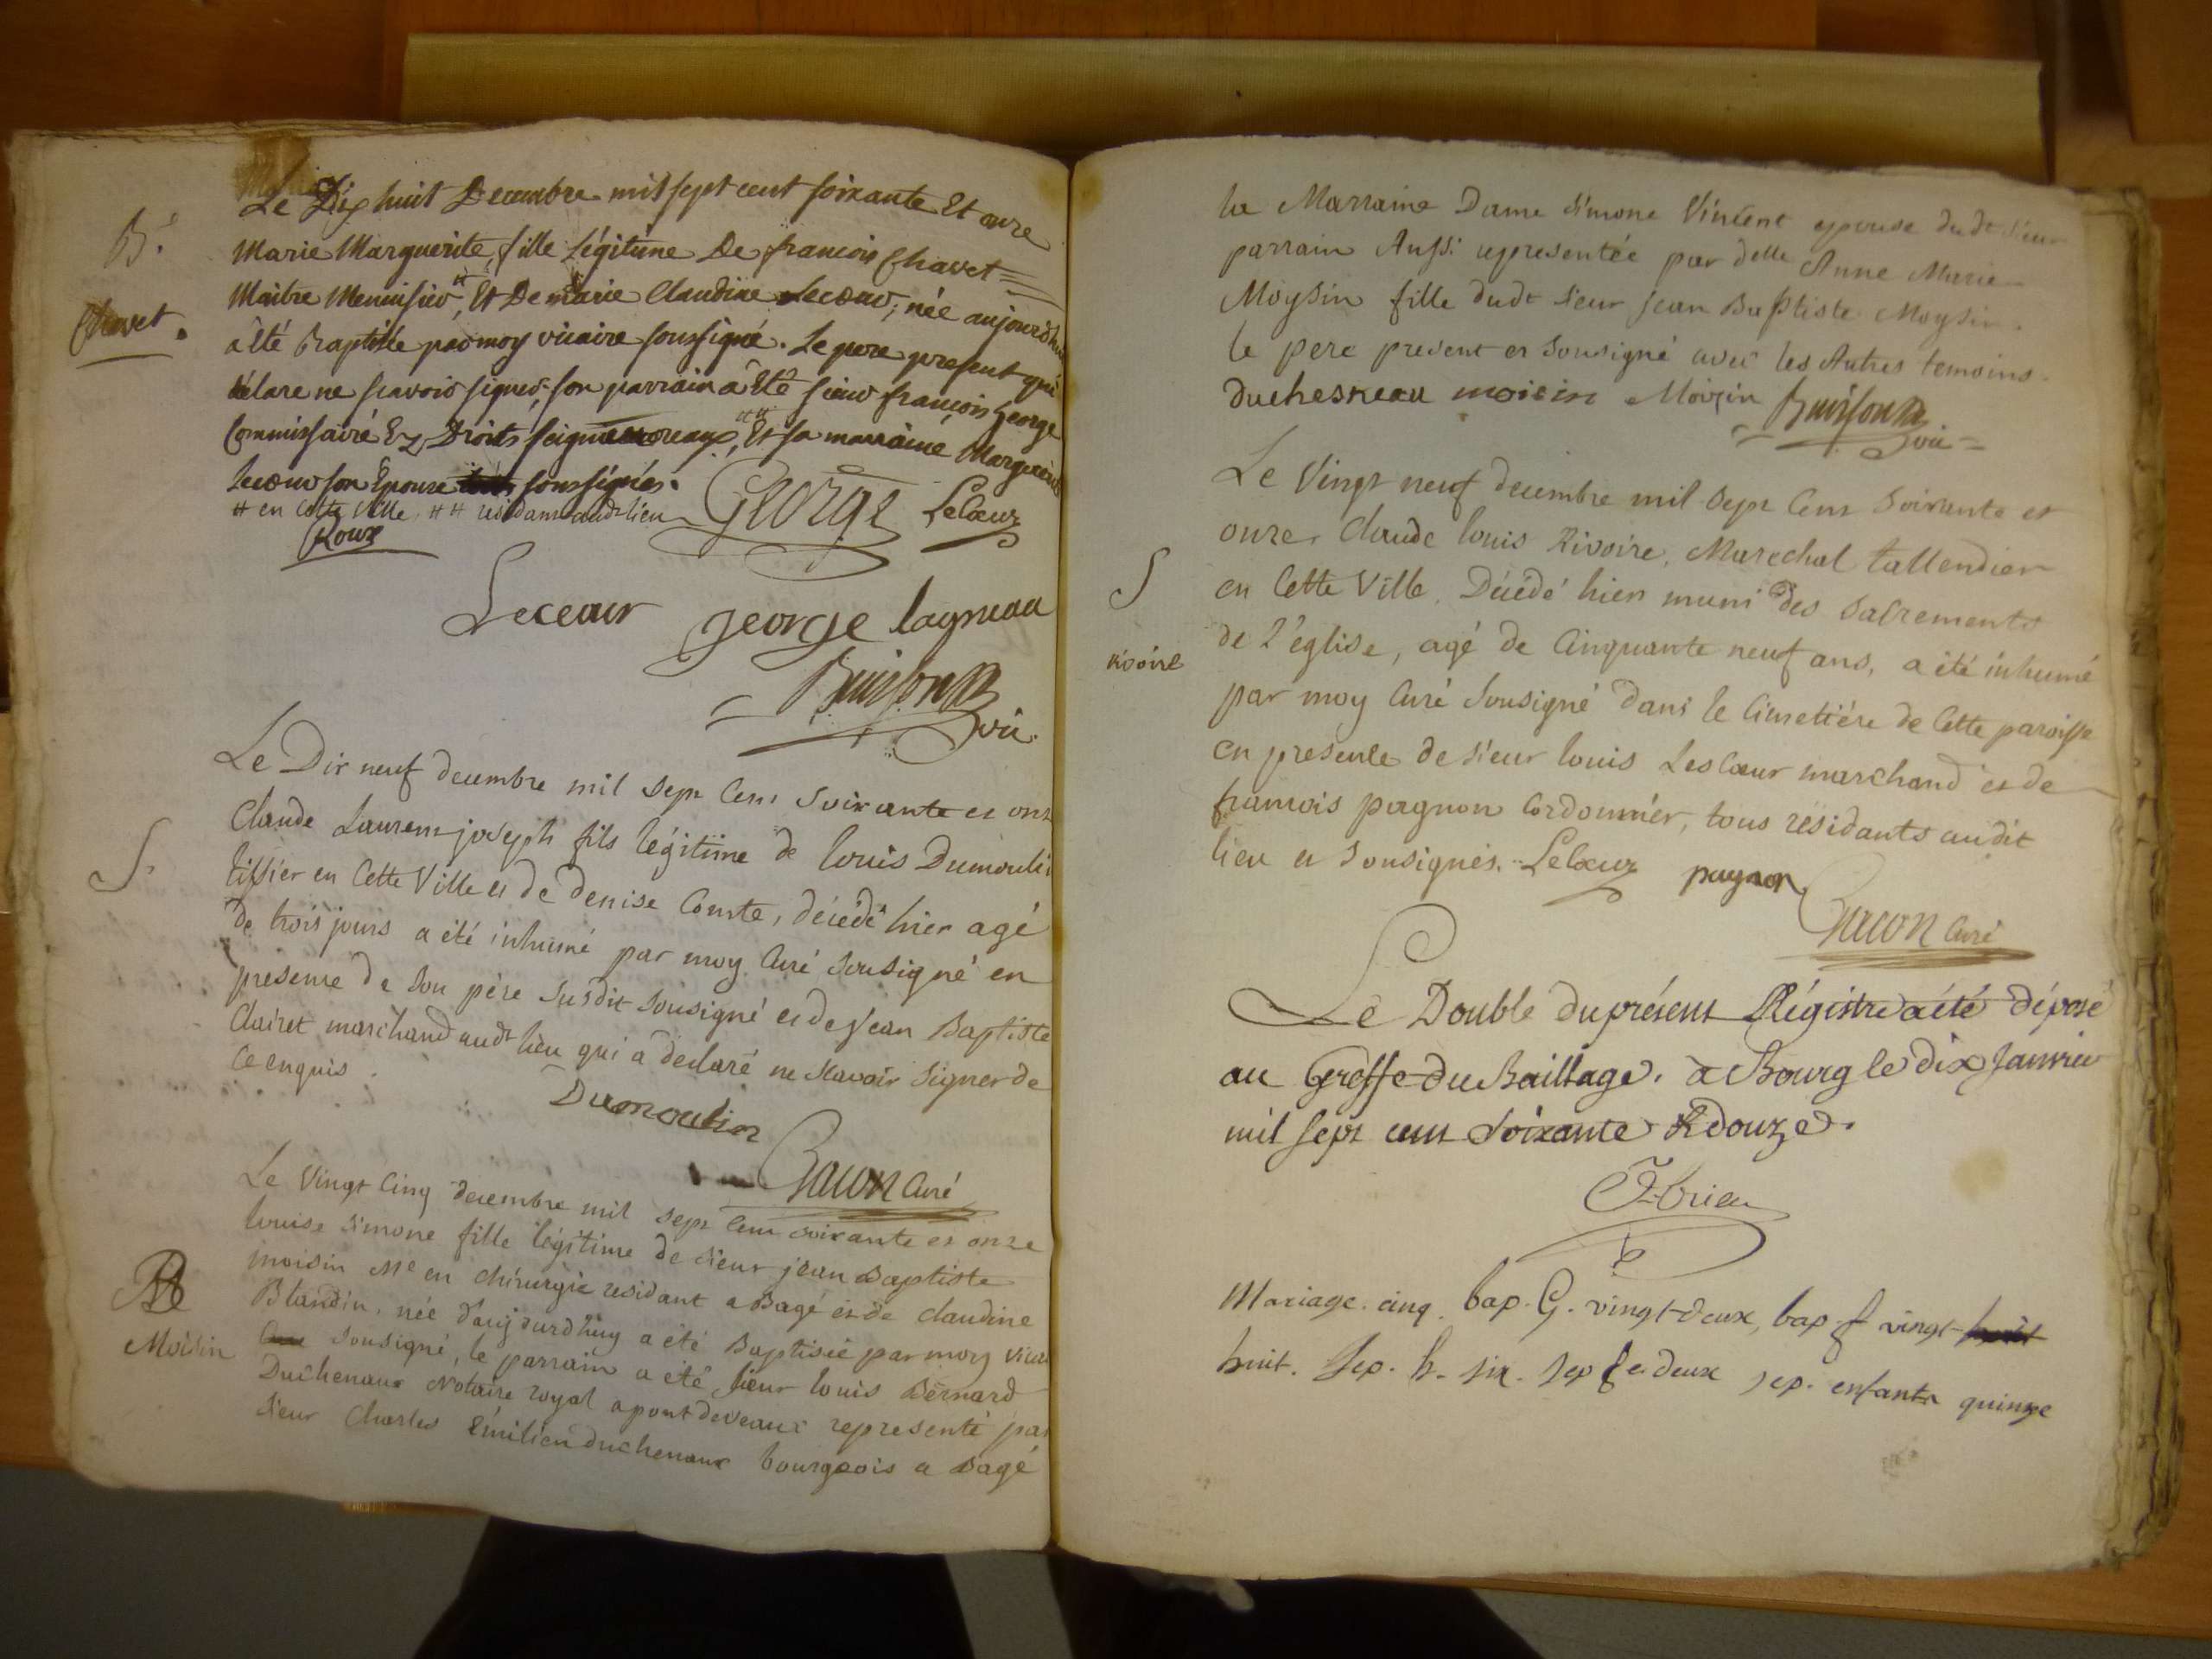 B.
Chavet.
Le Dix huit Decembre mil sept cent soixante Et onze
Marie Marguerite, fille Légitime De francois Chavet
Maitre Menuisier ⌗, Et De marie Claudine Lecoeur, née aujourdhui
a êté Baptisée par moy vicaire soussigné. Le pere present qui
déclare ne scavoir signer, son parrain a Eté sieur françois George
Commissaire Ez Droits seigneureaux ⌗⌗, Et sa marraine Marguerite
Lecoeur son Epouse soussignés.
⌗ en Cette Ville, ⌗⌗ residants audt lieu George LeCoeur
Roux
Leceour george lagneau
Buisson
vic.
S.
Le Dix neuf decembre mil sept Cent Soixante et onz
Claude Laurent joseph fils légitime de louis Dumouli
tissier en Cette Ville et de denise Comte, décédé hier agé
de trois jours a été inhumé par moy Curé Sousigné en
presence de Son père Susdit Sousigné et de jean Baptiste
Clairet marchand audt lieu qui a declaré ne Scavoir Signer de
Ce enquis.
Dumoulin
Curé
B
Moisin
Le Vingt Cinq decembre mil sept Cent soixante et onze
louise Simone fille légitime de Sieur jean Baptiste
moisin Me en chirurgie residant a Bagé et de claudine
Blandin, née daujourdhuy a été Baptisée par moy vica
Sousigné, le parrain a été sieur louis Bernard
Duchenaux Notaire royal a pontdevaux representé par
Sieur Charles Emilien duchenaux bourgeois a Bagé
la Marraine Dame Simone Vincent epouse dudt sieur
parrain Aussi representée par delle Anne Marie
Moysin fille dudt Sieur jean Baptiste Moysin.
le pere present et Sousigné avec les Autres temoins.
duchesneau moisin Moisin Buisson
vic
S
rivoire
Le Vingt neuf decembre mil Sept Cent Soixante et
onze, Claude louis Rivoire, Marechal tallendier
en Cette Ville, Décédé hier muni des Sacrements
de l'église, agé de Cinquante neuf ans, a été inhumé
par moy Curé Sousigné dans le Cimetiére de Cette paroisse
en presence de Sieur louis LesCoeur marchand et de
francois pagnon Cordonnier, tous résidants audit
lieu et Sousignés. LeCoeur pagnon
Curé
Le Double du présent Régistre a été déposé
au Greffe du Baillage. a Bourg le dix Janvier
mil sept cent Soixante & douze.
Mariage. cinq. bap. G. vingt-deux, bap. f vingt-huit
huit. Sep. h. six. Sep fe deux sep. enfants quinze